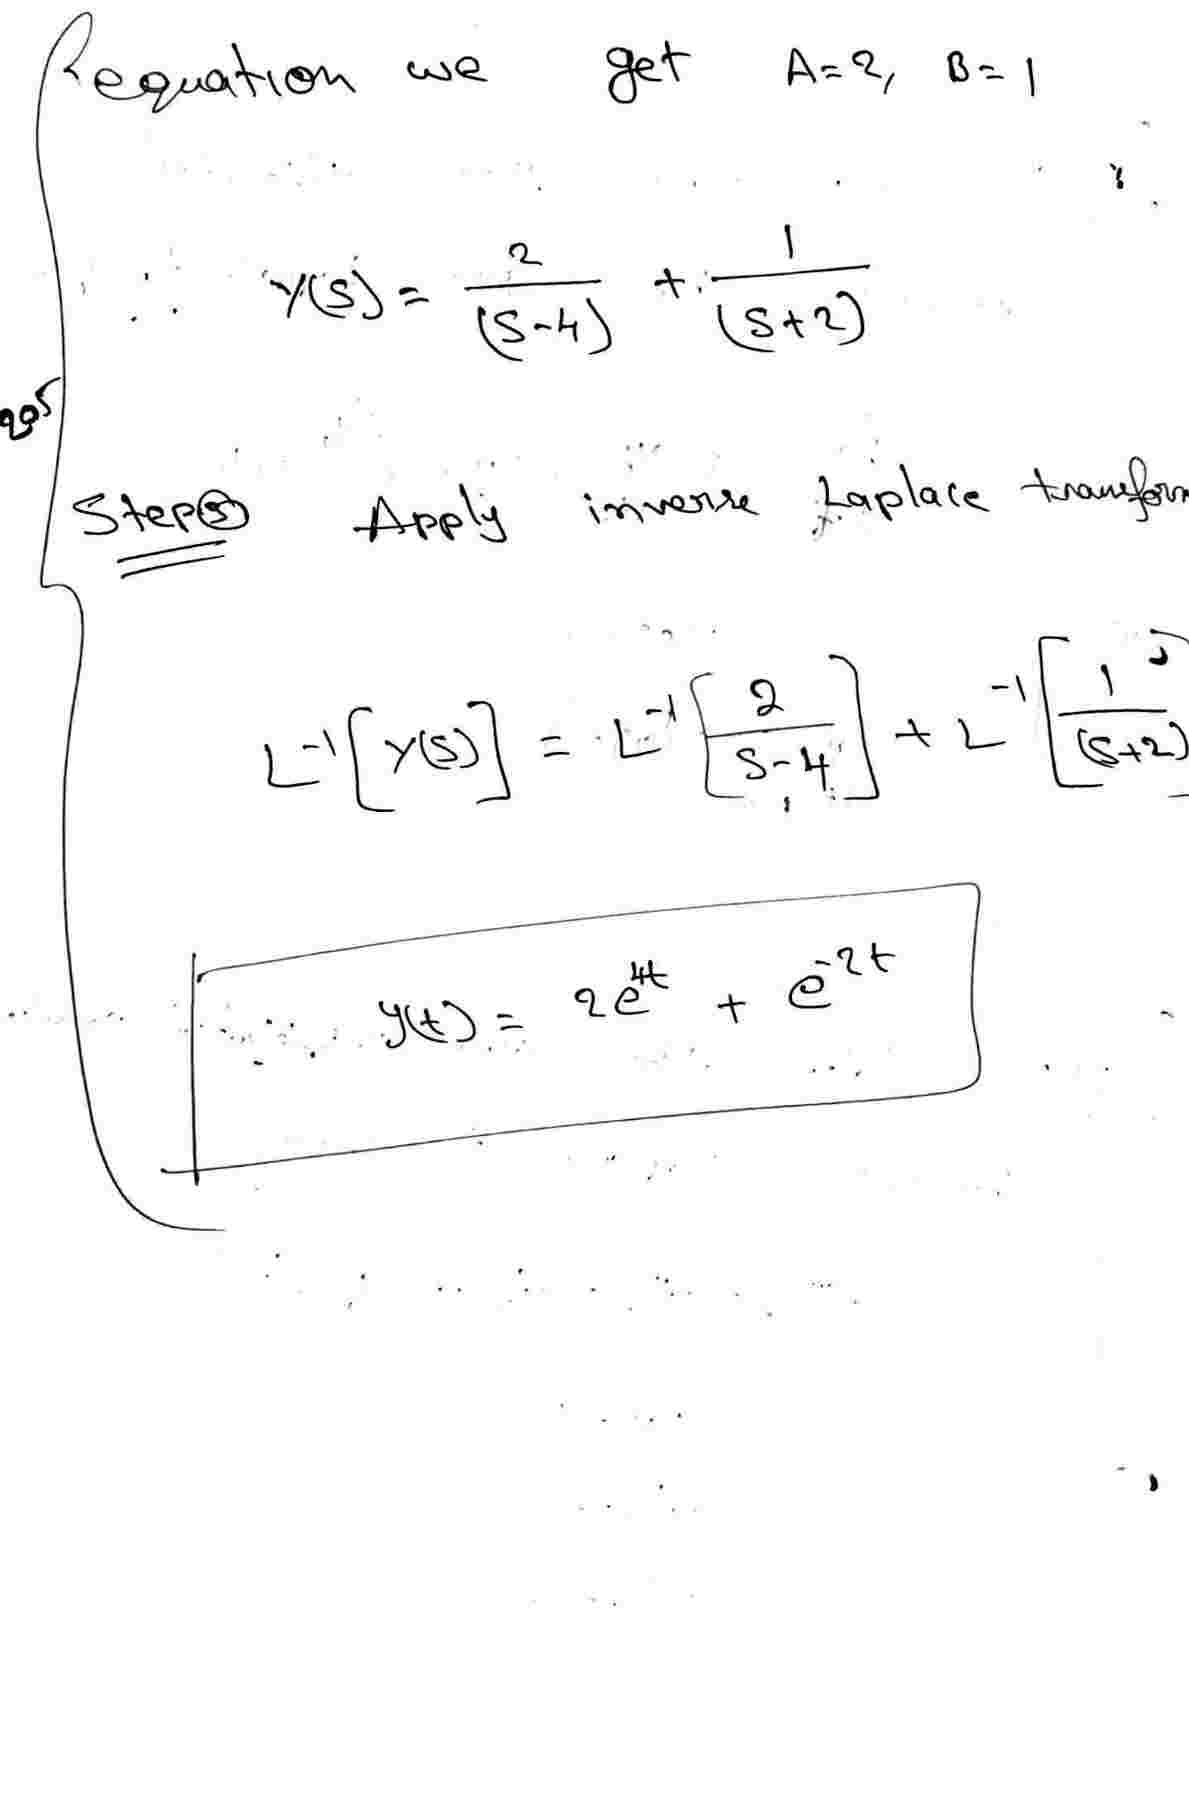 equation we get A=2, B=1
∴ Y(S) = 2/(S-4) + 1/(S+2)
Step⑤ Apply inverse Laplace transform
L⁻¹[Y(S)] = L⁻¹[2/S-4] + L⁻¹[1/(S+2)
y(t) = 2e^4t + e^-2t